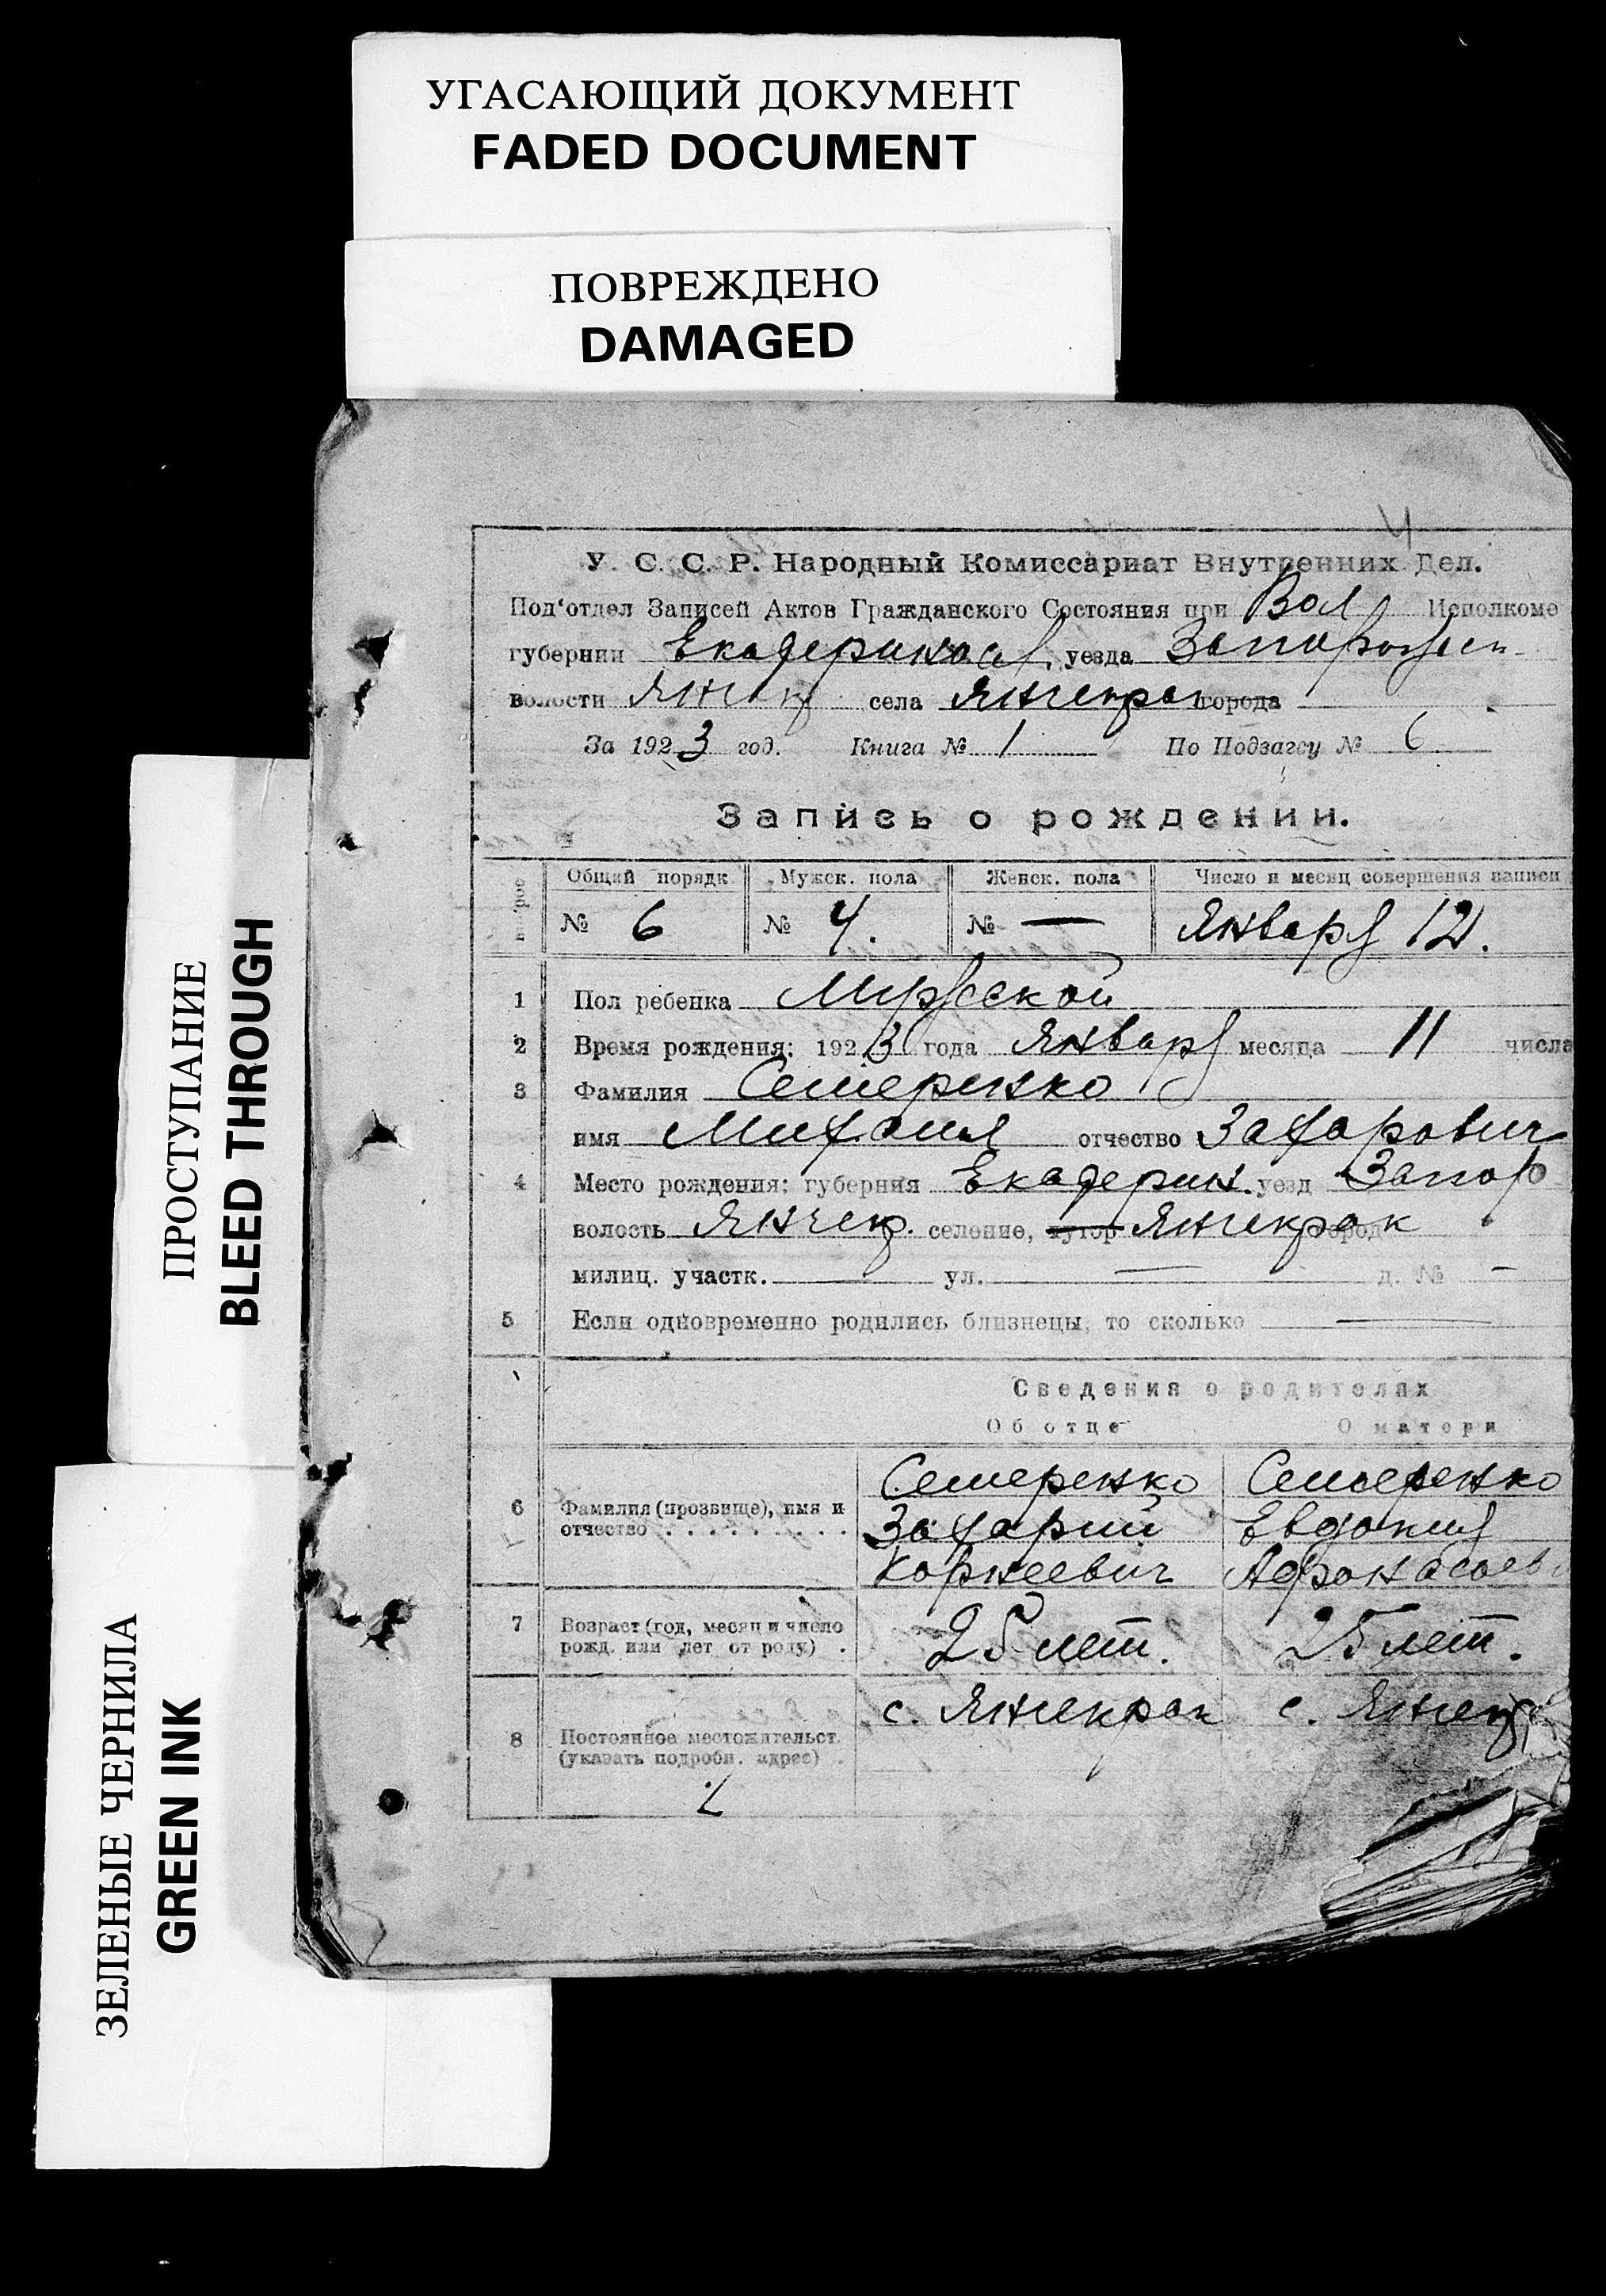 УГАСАЮЩИЙ ДОКУМЕНТ
FADED DOCUMENT
ПОВРЕЖДЕНО
DAMAGED
ПРОСТУПАНИЕ
BLEED THROUGH
ЗЕЛЕНЫЕ ЧЕРНИЛА
GREEN INK
4
У. С. С. Р. Народный Комиссариат Внутренних Дел.
Под'отдел Записей Актов Гражданского Состояния при Вол Исполкоме
губернии Екатериносл. уезда Запорожск
волости Янчекр села Янчекрак города
За 1923 год. Книга № 1 По Подзагсу № 6
Запись о рождении.
Общий порядк. Мужск. пола Женск. пола Число и месяц совершения записи
№ 6 № 4. № — Январь 12.
1 Пол ребенка Мужской
2 Время рождения: 1923 года Январь месяца 11 числа
3 Фамилия Семеренко
имя Михаил отчество Захарович
4 Место рождения: губерния Екатерин. уезд Запор
волость Янчекр. селение, хутор Янчекрак город
милиц. участк. — ул. — д. № —
5 Если одновременно родились близнецы, то сколько —
Сведения о родителях
Об отце О матери
6 Фамилия (прозвище), имя и отчество
Семеренко Семеренко
Захарий Евдокия
Корнеевич Афонасаев
7 Возраст (год, месяц и число рожд. или лет от роду) 25 лет. 25 лет.
8 Постоянное местожительст. (указать подробн. адрес) с. Янчекрак с. Янчекр